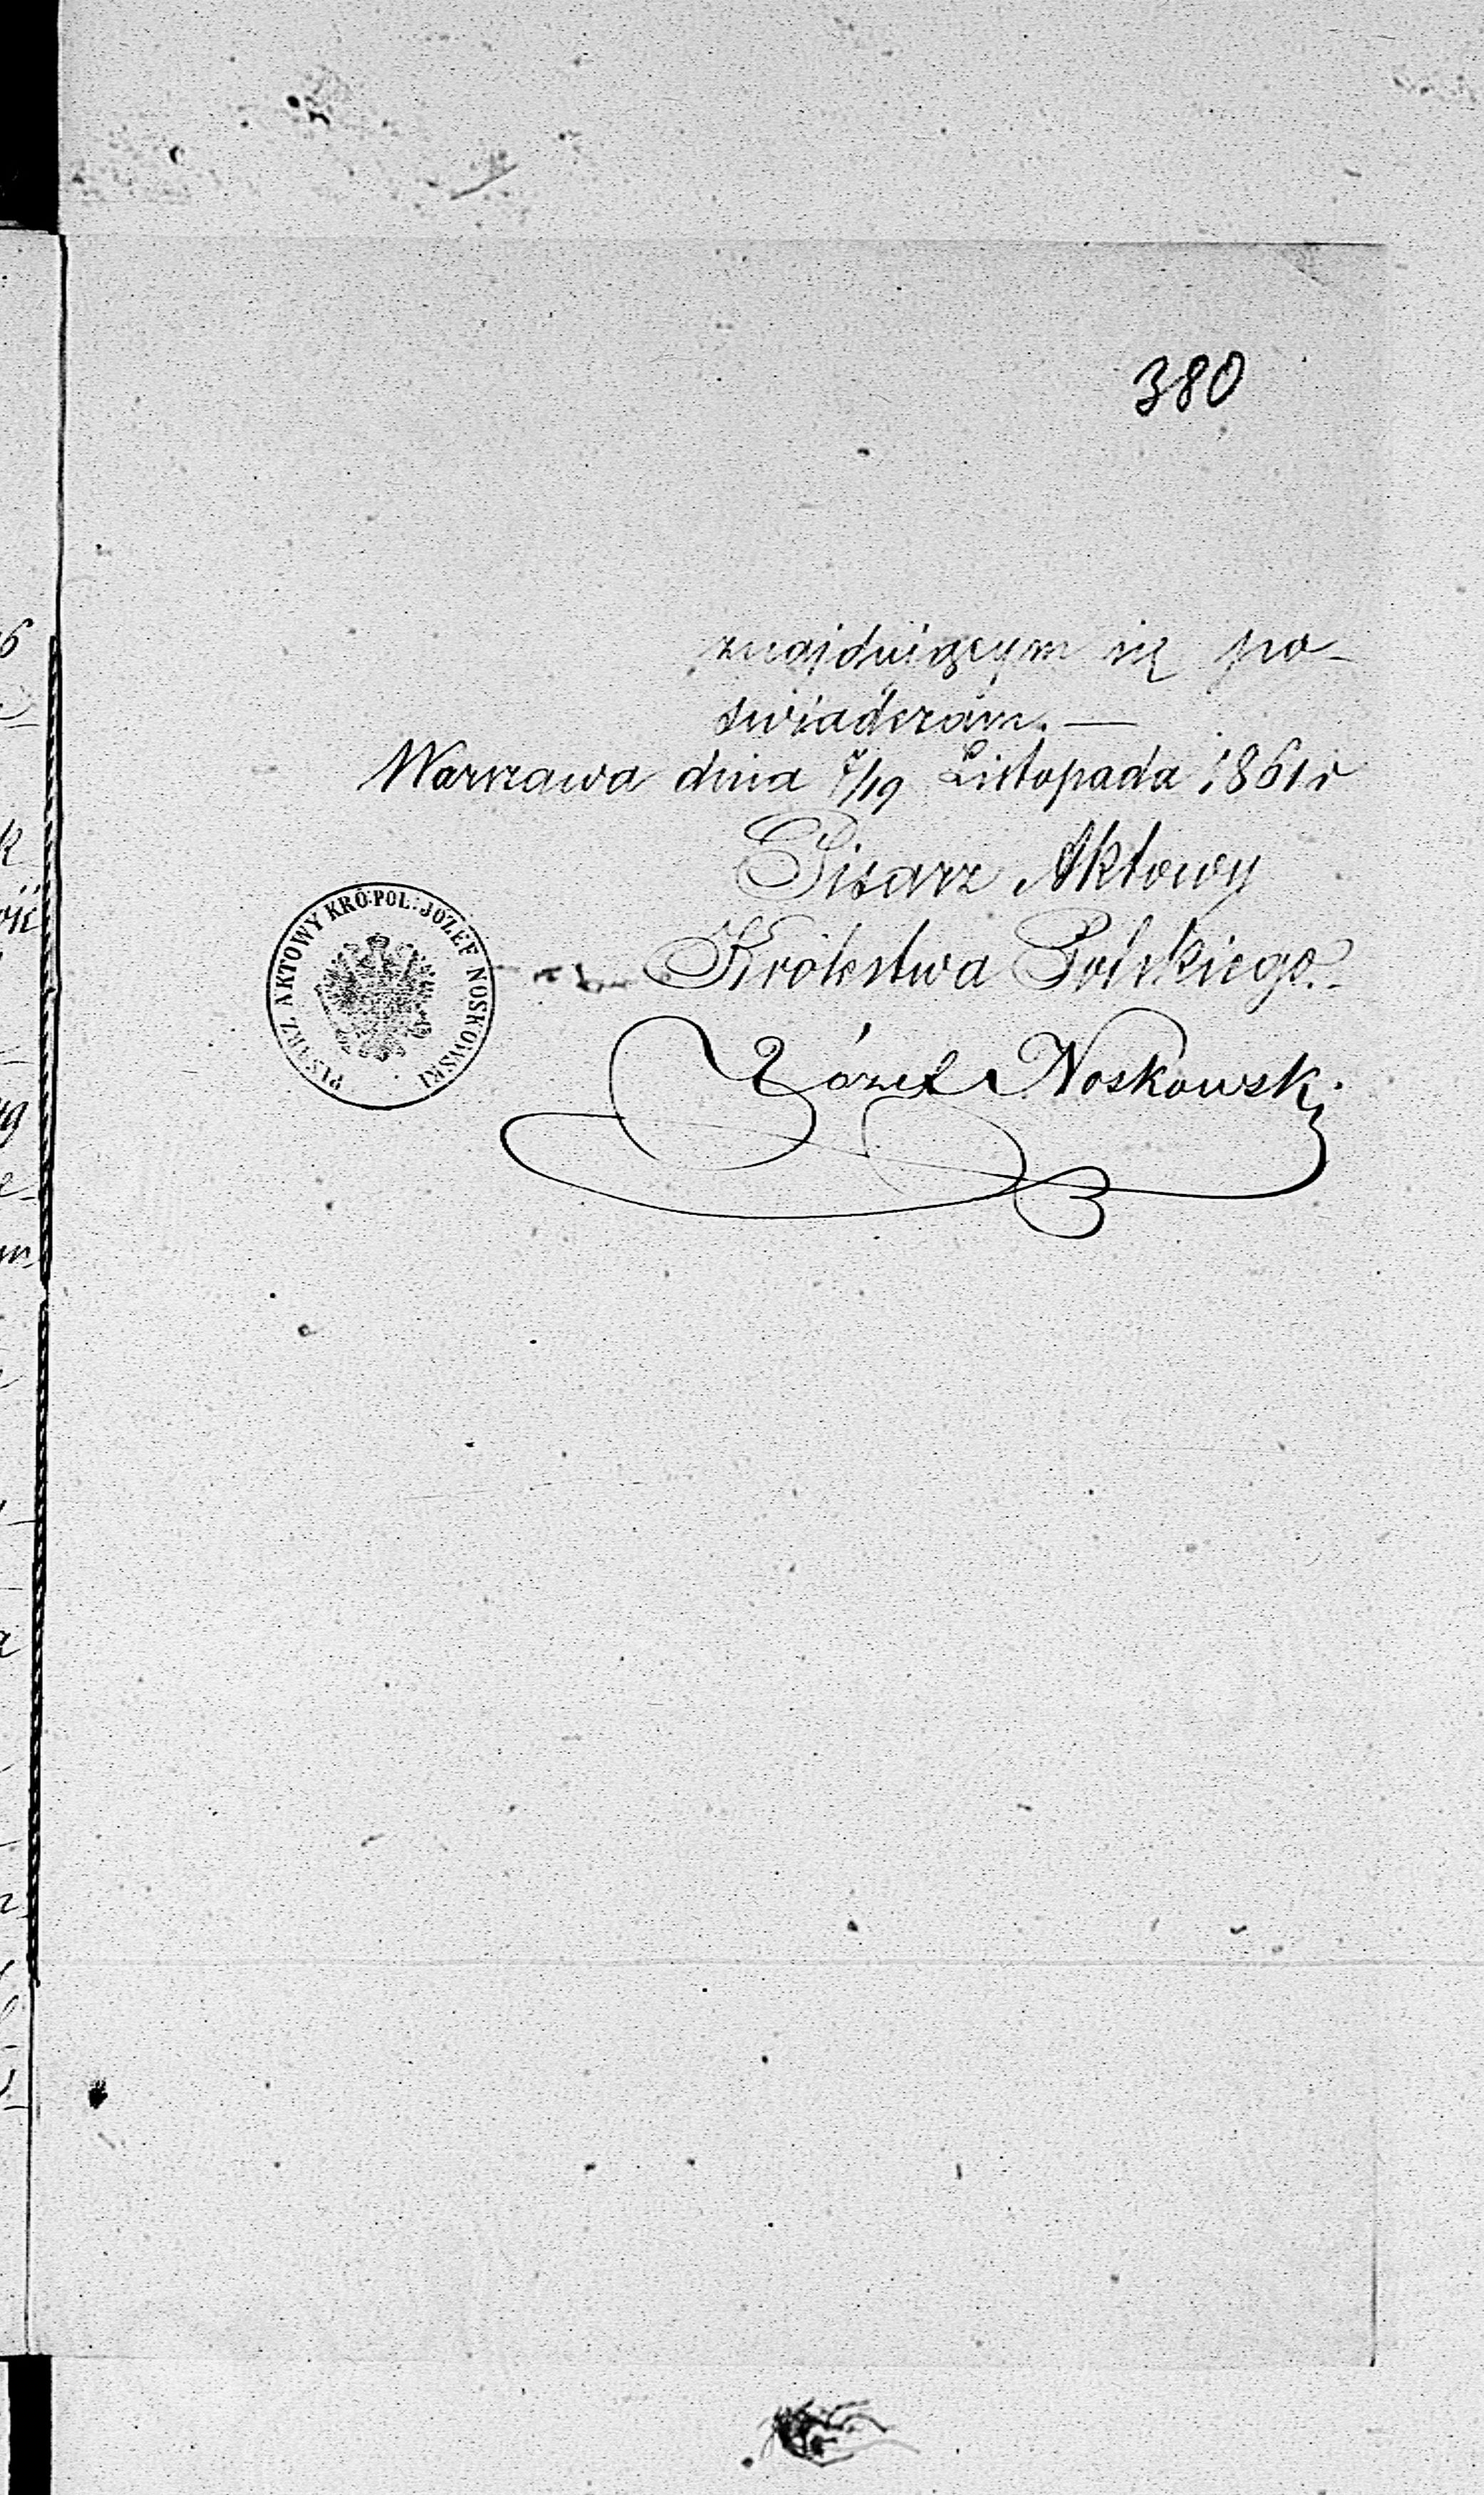 380
znajdującym się po-
świadczam. —
Warszawa dnia 7/19 Listopada 1861 r
Pisarz Aktowy
Królestwa Polskiego.
Józef Noskowski
PISARZ AKTOWY KRÓ: POL: JÓZEF NOSKOWSKI